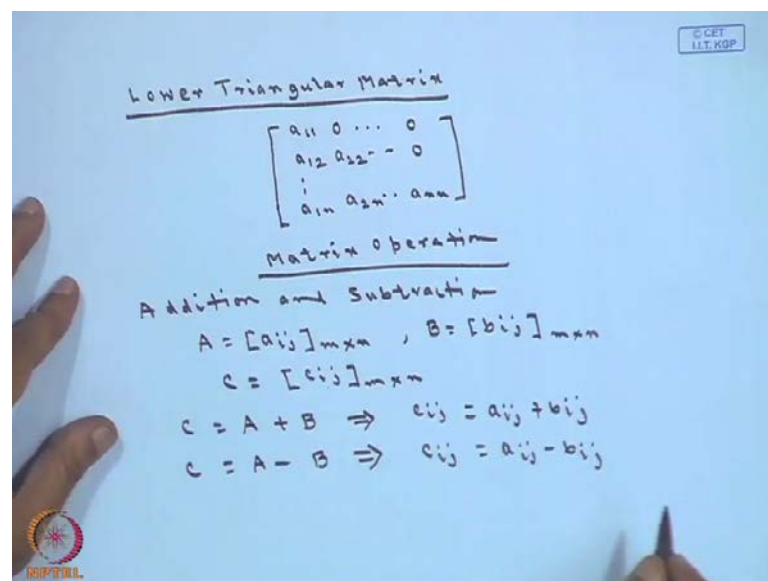 © CET
I.I.T. KGP
Lower Triangular Matrix
a11 0 ... 0
a12 a22 - - 0
⋮
a1n a2n .. ann
Matrix Operation
Addition and Subtraction
A = [aij]m×n , B = [bij]m×n
C = [cij]m×n
C = A + B ⇒ cij = aij + bij
C = A - B ⇒ cij = aij - bij
NPTEL